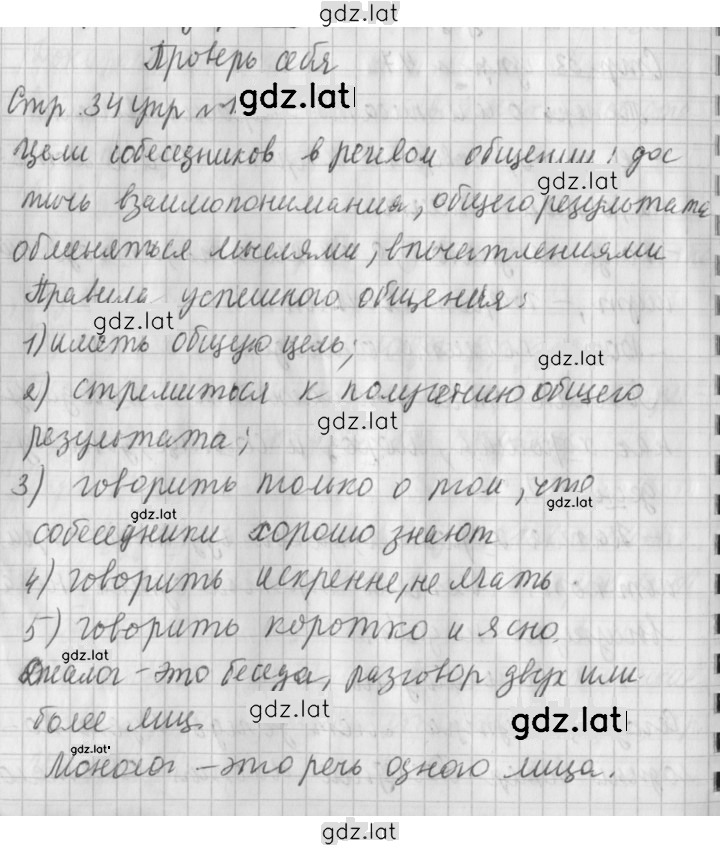 gdz.lat
Проверь себя
Стр. 34 упр №1. gdz.lat
Цели собеседников в речевом общении: дос
gdz.lat
тичь взаимопонимания, общего результата
обменяться мыслями, впечатлениями
Правила успешного общения:
gdz.lat
1) иметь общую цель;
gdz.lat
2) стремиться к получению общего
gdz.lat
результата;
3) говорить только о том, что
gdz.lat
gdz.lat
собеседники хорошо знают
4) говорить искренне, не лгать.
5) говорить коротко и ясно.
gdz.lat
Диалог - это беседа, разговор двух или
более лиц.
gdz.lat
gdz.lat
gdz.lat
Монолог - это речь одного лица.
gdz.lat